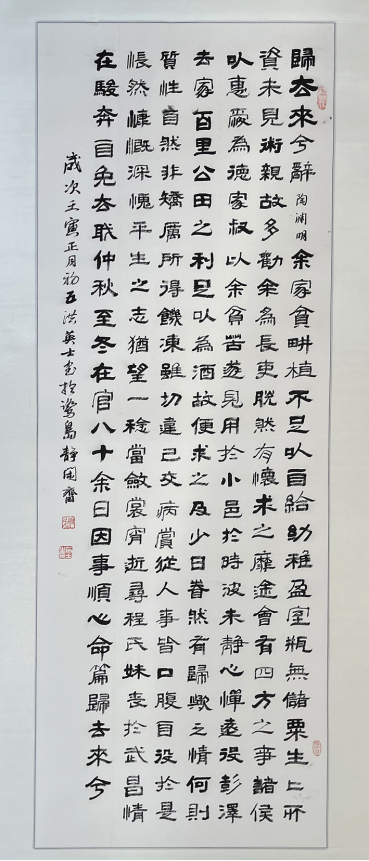 歸去來兮辭 陶淵明 余家貧畊植不足以自給幼稚盈室瓶無儲粟生生所
資未見術親故多勸余為長吏脫然有懷求之靡途會有四方之事諸侯
以惠愛為德家叔以余貧苦遂見用於小邑於時波未靜心憚遠役彭澤
去家百里公田之利足以為酒故便求之及少日眷然有歸歟之情何則
質性自然非矯厲所得饑凍雖切違己交病嘗從人事皆口腹自役於是
悵然慷慨深愧平生之志猶望一稔當斂裳宵逝尋程氏妹喪於武昌情
在駿奔自免去職仲秋至冬在官八十余日因事順心命篇歸去來兮
歲次壬寅正月初五洪英士書於鷺島靜齋